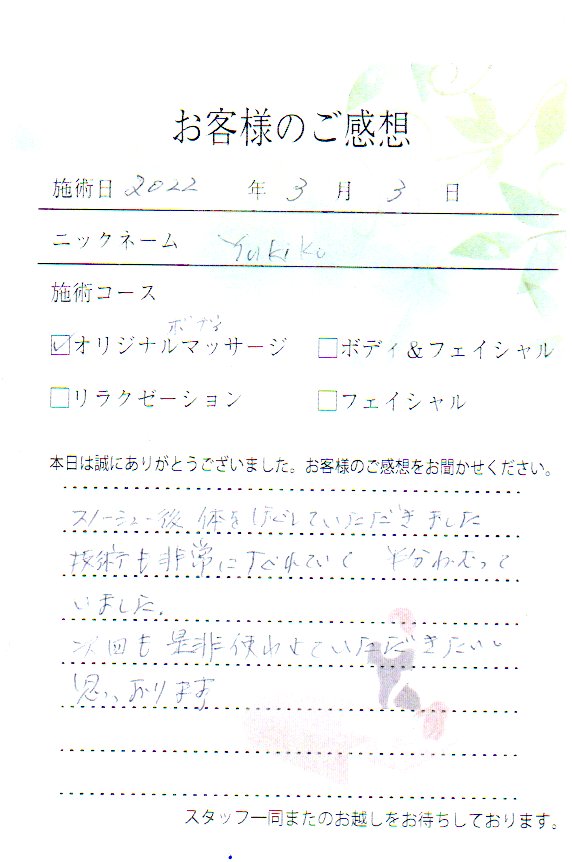 お客様のご感想
施術日 2022 年 3 月 3 日
ニックネーム Yukiko
施術コース
ボディ
☑オリジナルマッサージ □ボディ＆フェイシャル
□リラクゼーション □フェイシャル
本日は誠にありがとうございました。お客様のご感想をお聞かせください。
スノーシュー後、体をほぐしていただきました
技術も非常にすぐれていて 半分ねむって
いました。
次回も是非使わせていただきたいと
思いおります
スタッフ一同またのお越しをお待ちしております。